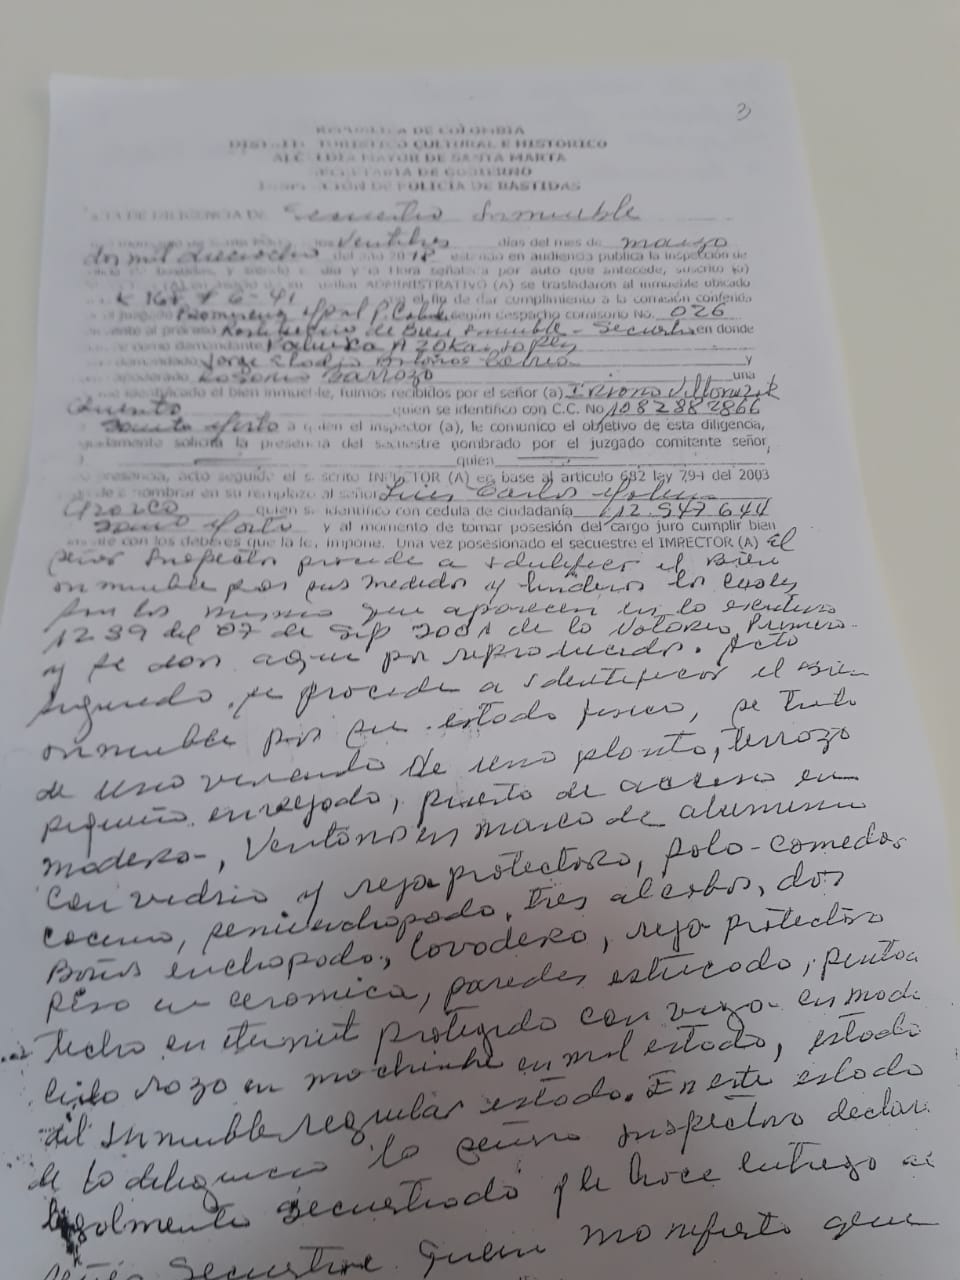 3
REPUBLICA DE COLOMBIA
DISTRITO TURISTICO CULTURAL E HISTORICO
ALCALDIA MAYOR DE SANTA MARTA
SECRETARIA DE GOBIERNO
INSPECCION DE POLICIA DE BASTIDAS
ACTA DE DILIGENCIA DE Secuestro Inmueble
días del mes de marzo
dos mil dieciocho del año 2018 en audiencia publica la inspección de
y siendo el día y la Hora señalada por auto que antecede, suscrito
ADMINISTRATIVO (A) se trasladaron al inmueble ubicado
el fin de dar cumplimiento a la comisión conferida
según despacho comisorio No. 026
de Bien Inmueble - Secuestro en donde
demandante
demandado Jorge
y
apoderado una
identificado el bien inmueble, fuimos recibidos por el señor (a)
quien se identifico con C.C. No 1082882866
a quien el inspector (a), le comunico el objetivo de esta diligencia,
solicita la presencia del secuestre nombrado por el juzgado comitente señor,
quien
presencia, acto seguido el suscrito INSPECTOR (A) en base al articulo 682 ley 794 del 2003
nombrar en su remplazo al señor Luis Carlos
Orozco quien se identifico con cedula de ciudadanía 12.547.644
y al momento de tomar posesión del cargo juro cumplir bien
con los deberes que la ley impone. Una vez posesionado el secuestre el IMPRECTOR (A) el
señor Inspector procede a identificar el Bien
inmueble por sus medidas y linderos los cuales
son los mismos que aparecen en la escritura
1239 del 07 de Sep 2001 de la Notaria Primera
y se dan aqui por reproducidas. Acto
seguido, se procede a identificar el Bien
inmueble por su estado fisico, se trata
de una vivienda de una planta, terraza
pequeña enrejada, puerta de acceso en
madera, Ventanas en marco de aluminio
con vidrio y reja protectora, sala-comedor
cocina, semienchapada, tres alcobas, dos
Baños enchapado, lavadero, reja protectora
Piso en ceramica, paredes estucado, pintada
techo en eternit protegido con vigas en made
cielo razo en machimbe en mal estado, estado
del Inmueble regular estado. En este estado
de la diligencia la señora Inspectora declara
legalmente secuestrado y le hace entrega al
señor Secuestre Quien manifesto que